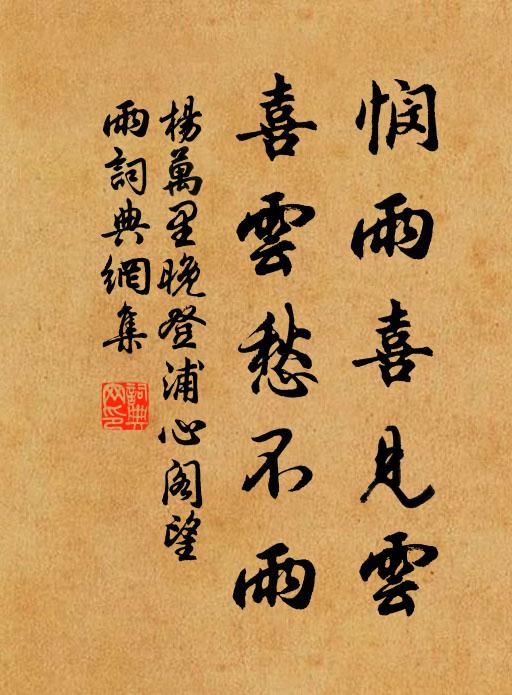 憫雨喜見雲
喜雲愁不雨
楊萬里晚登浦心閣望
雨詞典網集
詞典
网印